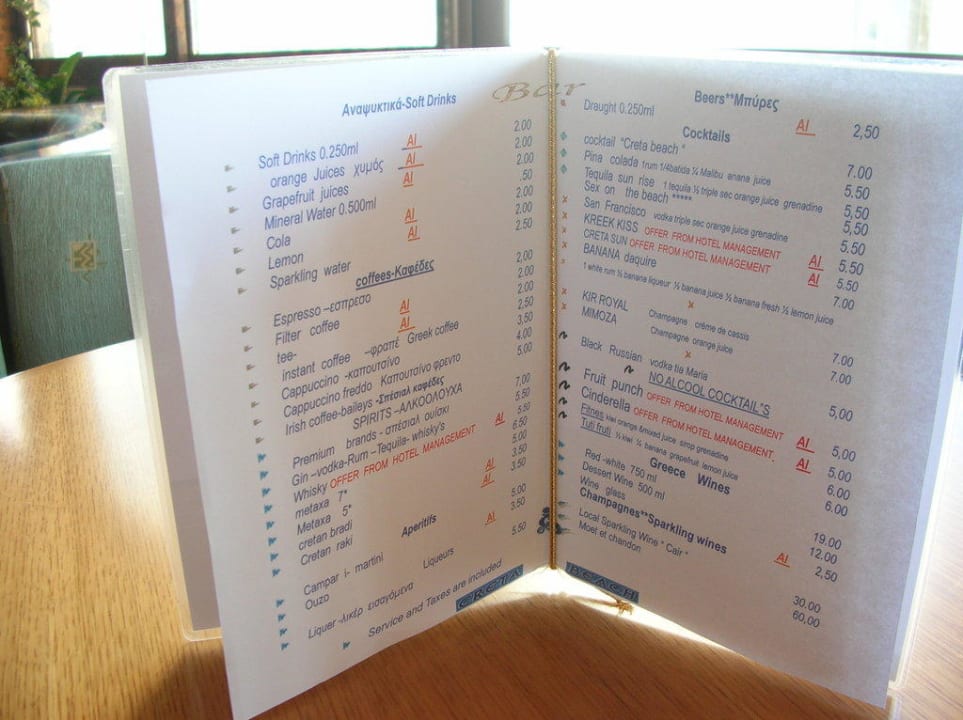 Bar
Αναψυκτικά-Soft Drinks
Soft Drinks 0.250ml AI 2,00
orange Juices χυμός AI 2.00
Grapefruit juices AI 2.00
Mineral Water 0.500ml .50
Cola AI 2.00
Lemon AI 2.00
Sparkling water 2.50
coffees-Καφέδες
Espresso –εσπρεσο 2,00
Filter coffee AI 2.00
tee- AI 2.00
instant coffee –φραπέ Greek coffee 2,50
Cappuccino -καπουτσίνο 3,50
Cappuccino freddo Καπουτσίνο φρεντο 4.00
Irish coffee-baileys -Σπέσιαλ καφέδες 5.00
SPIRITS –ΑΛΚΟΟΛΟΥΧΑ
Premium brands - σπέσιαλ ουίσκι 7,00
Gin –vodka-Rum –Tequila- whisky's 5.50
Whisky OFFER FROM HOTEL MANAGEMENT AI 5.50
metaxa 7* 6.50
Metaxa 5* 5.00
cretan bradi AI 3.50
Cretan raki AI 3.50
Aperitifs
Campar i- martini 5.00
Ouzo AI 3.50
Liqueurs
Liquer -λικέρ εισαγόμενα 5.50
Service and Taxes are included
CRETA BEACH
Beers**Μπύρες
Draught 0.250ml AI 2,50
Cocktails
cocktail "Creta beach " 7.00
Pina colada 1rum 1/4batida ¼ Malibu anana juice 5.50
Tequila sun rise 1 tequila ½ triple sec orange juice grenadine 5,50
Sex on the beach ***** 5,50
San Francisco vodka triple sec orange juice grenadine 5.50
KREEK KISS OFFER FROM HOTEL MANAGEMENT AI 5.50
CRETA SUN OFFER FROM HOTEL MANAGEMENT AI 5.50
BANANA daquire 7.00
1 white rum ½ banana liqueur ½ banana juice ½ banana fresh ½ lemon juice
KIR ROYAL Champagne créme de cassis 7.00
MIMOZA Champagne orange juice 7.00
Black Russian vodka tia Maria 5,00
NO ALCOOL COCKTAIL"S
Fruit punch OFFER FROM HOTEL MANAGEMENT AI 5,00
Cinderella OFFER FROM HOTEL MANAGEMENT. AI 5.00
Fitnes kiwi orange &mixed juice sirop grenadine 6.00
Tuti fruti ½ kiwi ½ banana grapefruit lemon juice 6.00
Greece Wines
Red -white 750 ml 19.00
Dessert Wine 500 ml 12.00
Wine glass AI 2,50
Champagnes**Sparkling wines
Local Sparkling Wine " Cair " 30.00
Moet et chandon 60,00